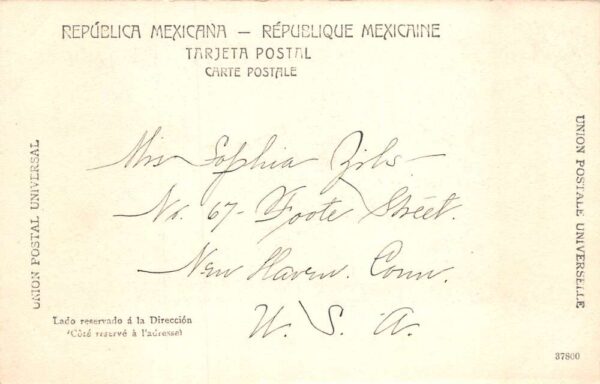 REPÚBLICA MEXICANA — RÉPUBLIQUE MEXICAINE
TARJETA POSTAL
CARTE POSTALE
UNION POSTAL UNIVERSAL
UNION POSTALE UNIVERSELLE
Miss Sophia
No. 67- Foote Street.
New Haven. Conn.
U. S. A.
Lado reservado á la Dirección
(Côté reservé à l'adresse)
37800